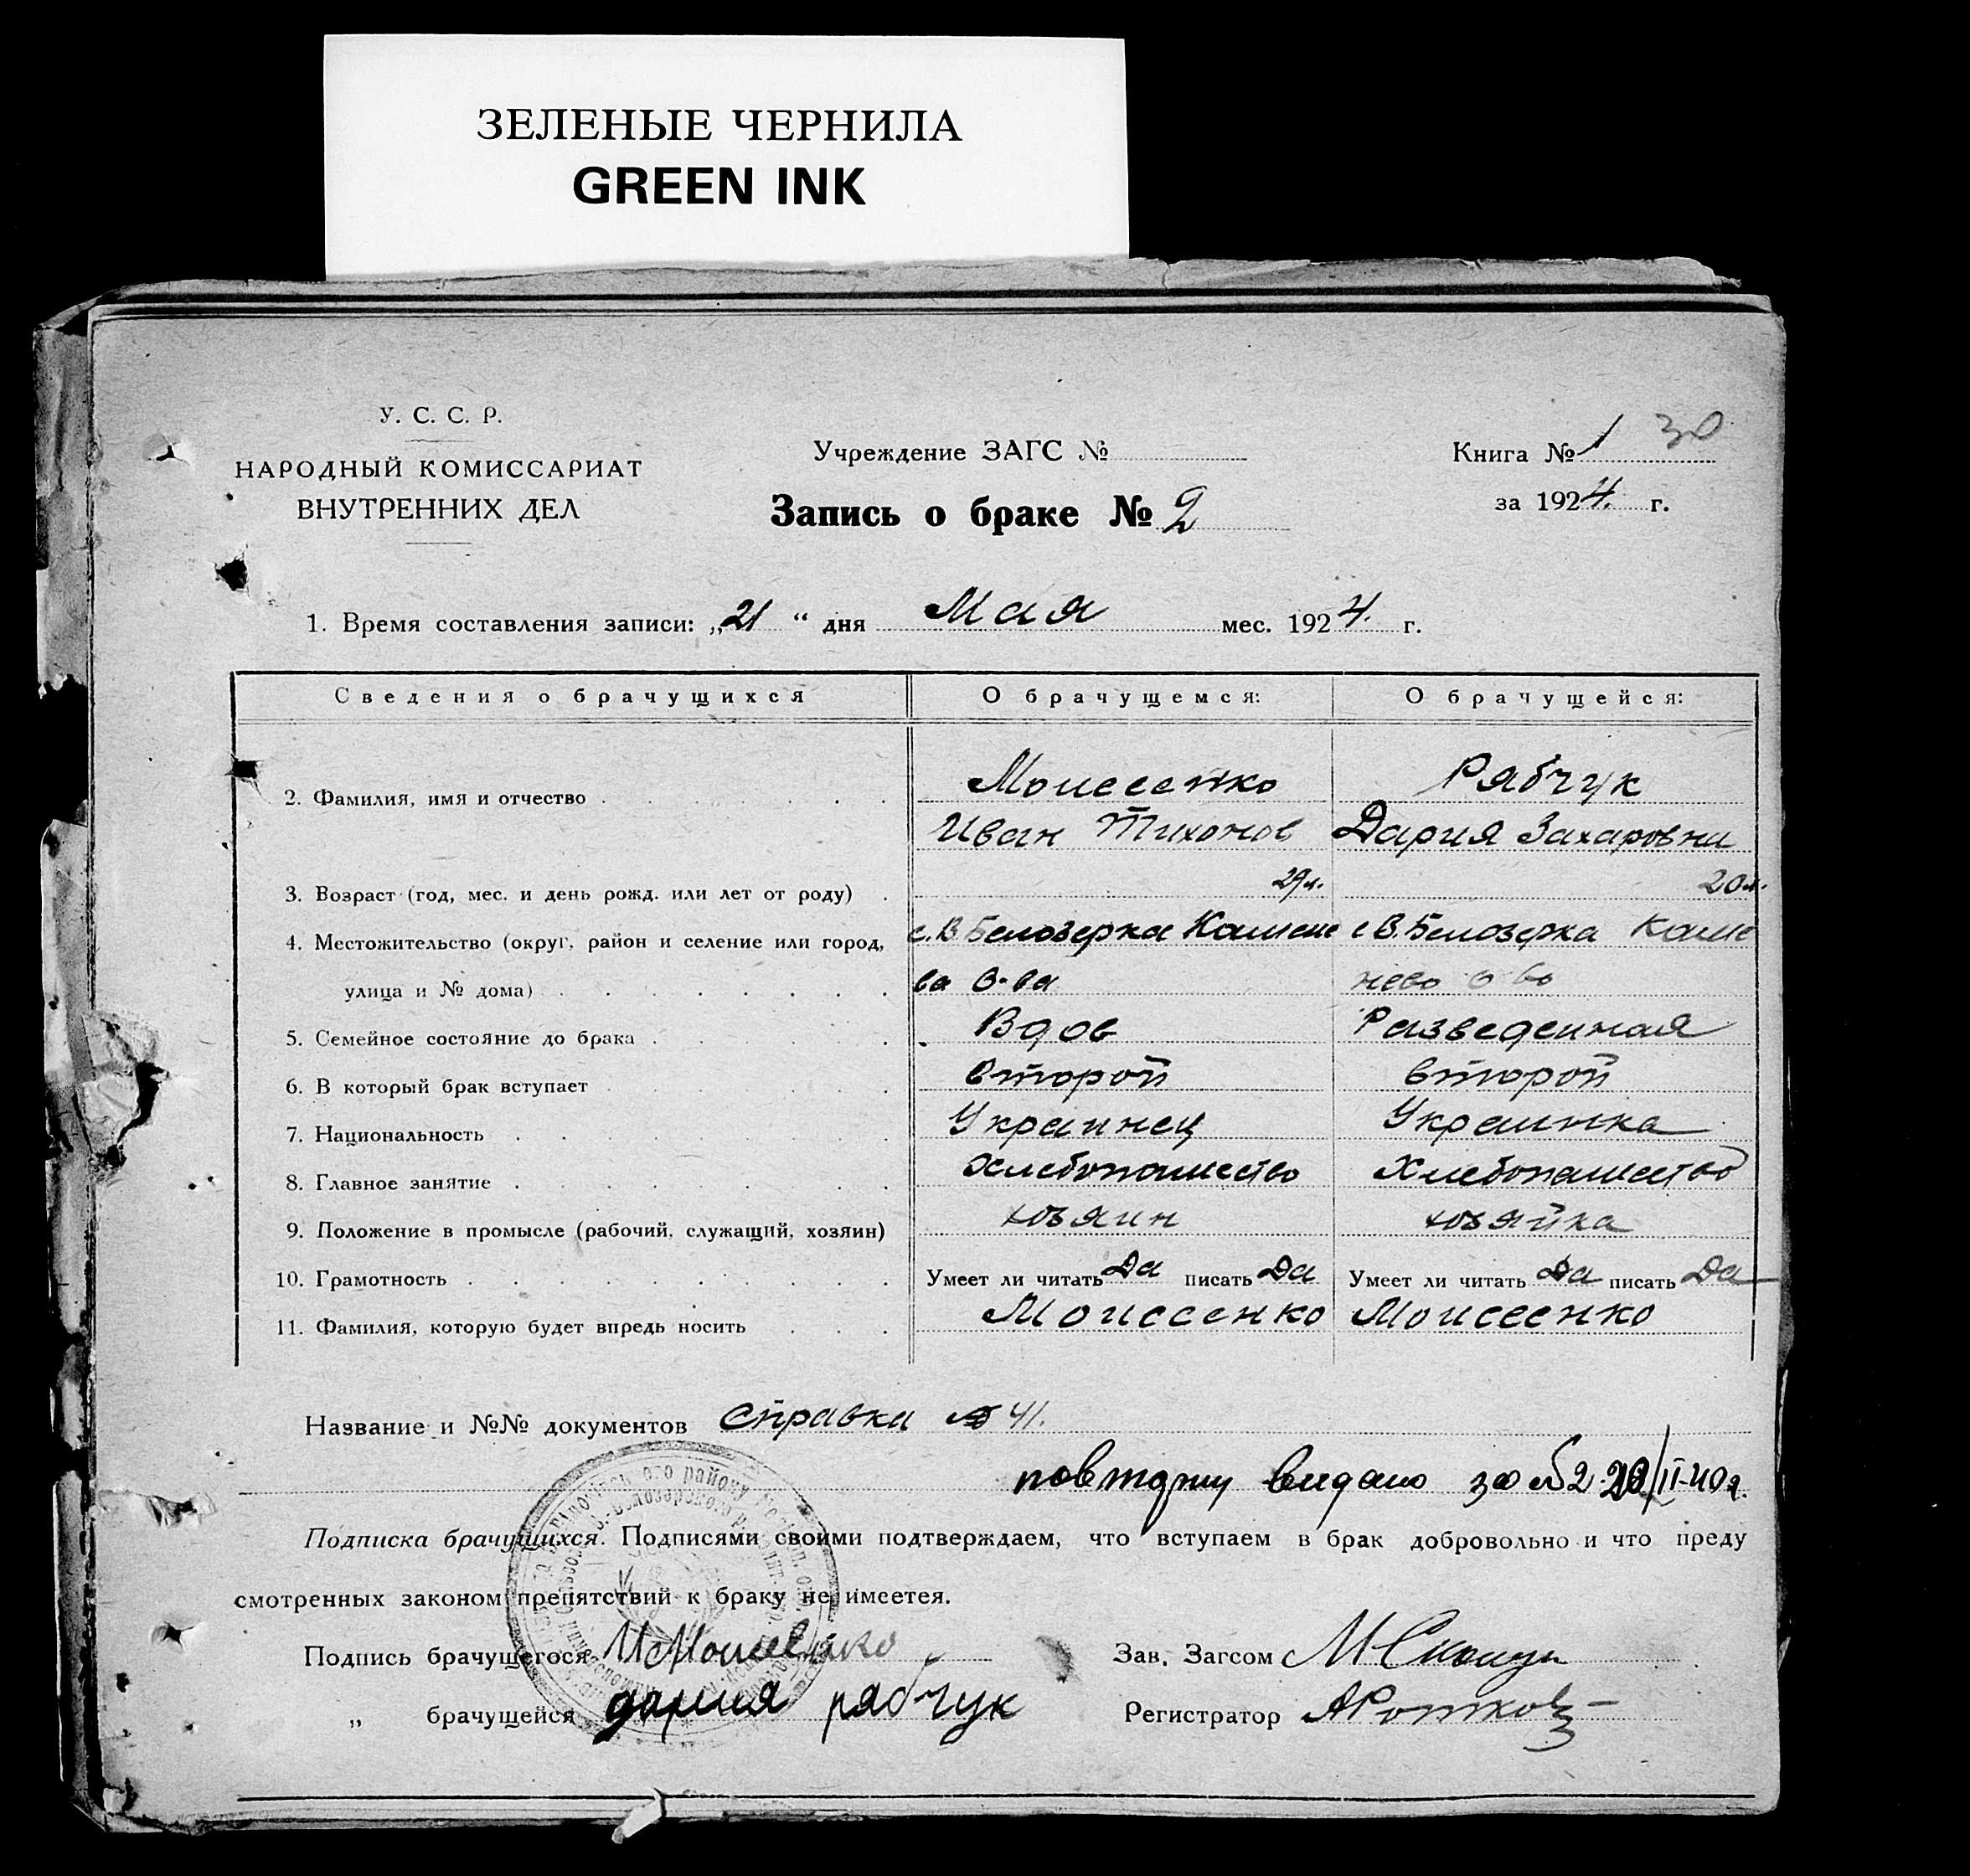 ЗЕЛЕНЫЕ ЧЕРНИЛА
GREEN INK
У. С. С. Р.
НАРОДНЫЙ КОМИССАРИАТ
ВНУТРЕННИХ ДЕЛ
Учреждение ЗАГС №
Запись о браке № 2
Книга № 1 30
за 1924 г.
1. Время составления записи: „21“ дня Мая мес. 1924. г.
Сведения о брачущихся О брачущемся: О брачущейся:
2. Фамилия, имя и отчество Моисеенко Рябчук
Иван Тихонов Дария Захаровна
3. Возраст (год, мес. и день рожд. или лет от роду) 29л. 20л.
4. Местожительство (округ, район и селение или город, с. В Белозерка Камене с В. Белозерка Каме
улица и № дома) ва о-ва нево о во
5. Семейное состояние до брака Вдов Разведенная
6. В который брак вступает второй второй
7. Национальность Украинец Украинка
8. Главное занятие Хлебопашество Хлебопашество
9. Положение в промысле (рабочий, служащий, хозяин) хозяин хозяйка
10. Грамотность Умеет ли читать Да писать Да Умеет ли читать Да писать Да
11. Фамилия, которую будет впредь носить Моисеенко Моисеенко
Название и №№ документов Справка № 41.
повторну видано за № 2 20/II-40 р.
Подписка брачущихся. Подписями своими подтверждаем, что вступаем в брак добровольно и что преду
смотренных законом препятствий к браку не имеетея.
Подпись брачущегося ИМоисеенко Зав. Загсом
„ брачущейся дария рябчук Регистратор